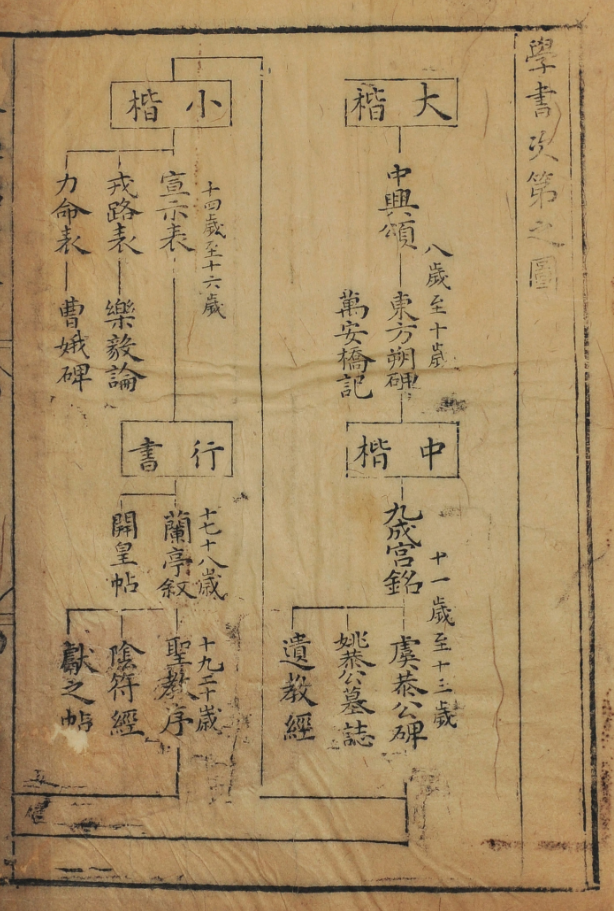 學書次第之圖
大楷
中興頌
八歲至十歲
東方朔碑
萬安橋記
中楷
九成宮銘
十一歲至十三歲
虞恭公碑
姚恭公墓誌
遺教經
小楷
十四歲至十六歲
宣示表
戎路表
樂毅論
力命表
曹娥碑
行書
十七十八歲
蘭亭敘
開皇帖
十九二十歲
聖教序
陰符經
獻之帖